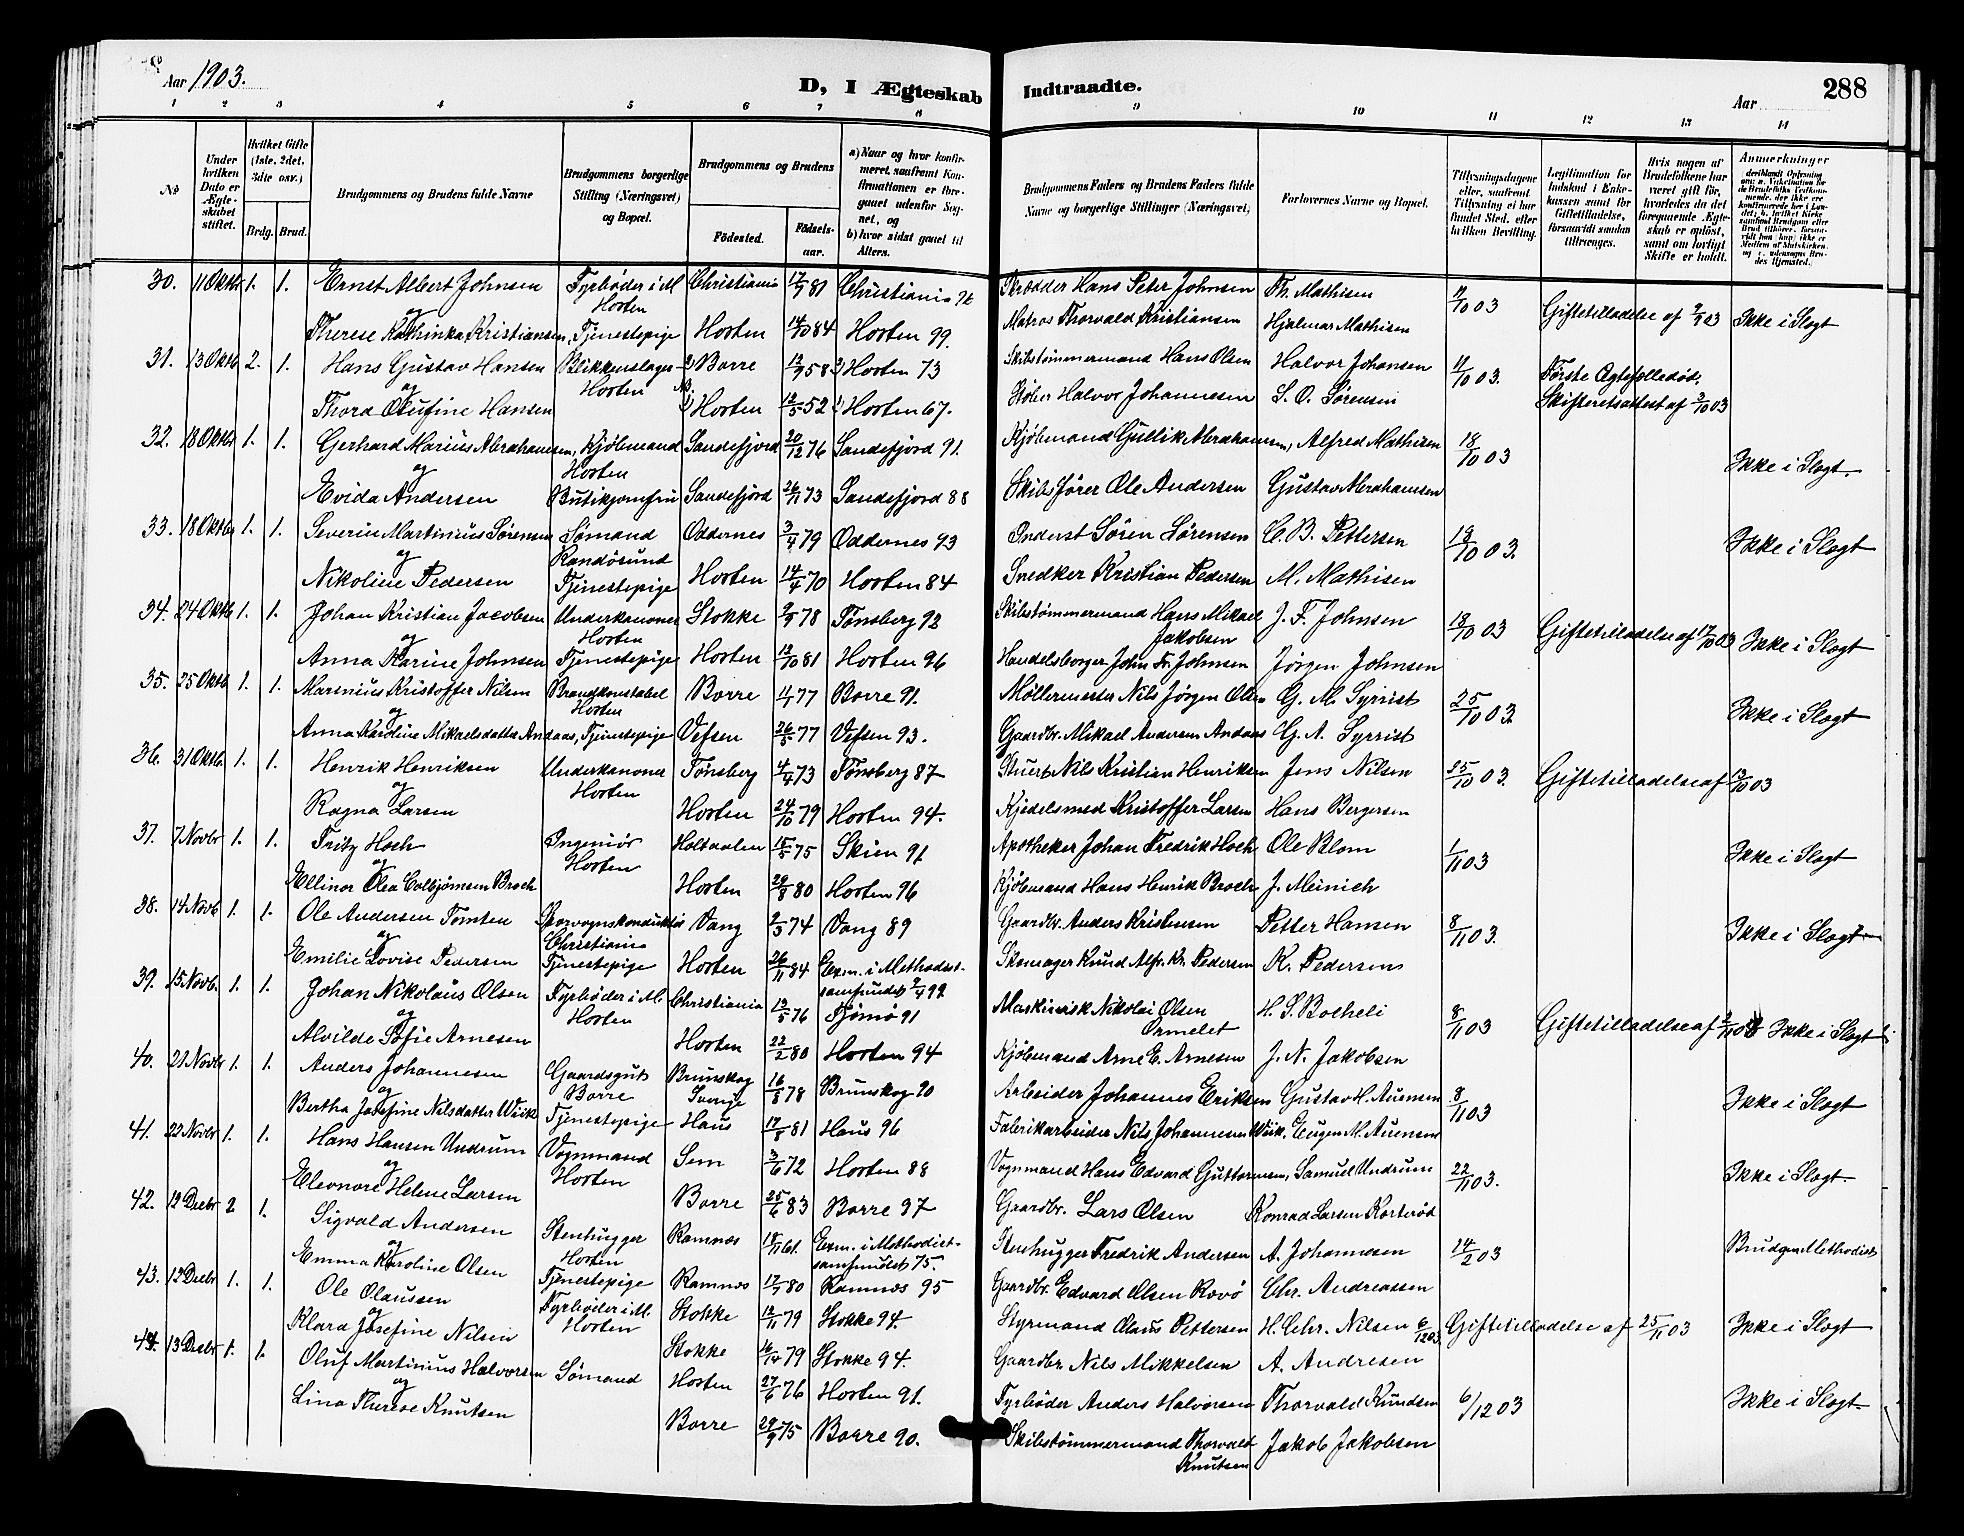 Aar 1903.
D, I Ægteskab Indtraadte.
Aar
288
1 2 3 4 5 6 7 8 9 10 11 12 13 14
No
Under hvilken Dato er Ægteskabet stiftet.
Hvilket Gifte (1ste, 2det, 3die osv.)
Brdg. Brud.
Brudgommens og Brudens fulde Navne
Brudgommens borgerlige Stilling (Næringsvei) og Bopæl.
Brudgommens og Brudens
Födested.
Födselsaar.
a) Naar og hvor konfirmeret, saafremt Konfirmationen er foregaaet udenfor Sognet, og
b) hvor sidst gaaet til Alters.
Brudgommens Faders og Brudens Faders fulde Navne og borgerlige Stillinger (Næringsvei)
Forlovernes Navne og Bopæl.
Tillysningsdagene eller, saafremt Tillysning ei har fundet Sted, efter hvilken Bevilling.
Legitimation for Indskud i Enkekassen samt for Giftetilladelse, forsaavidt saadan tiltrænges.
Hvis nogen af Brudefolkene har været gift før, hvorledes da det foregaaende Ægteskab er opløst, samt om lovligt Skifte er holdt.
Anmærkninger
30. 11 Oktbr 1. 1. Ernst Albert Johnsen Fyrbøder i M Horten Christiania 17/9 81 Christiania 96 Skrædder Hans Peter Johnsen Th. Mathisen 4/10 03 Giftetilladelse af 9/9 03 Ikke i Slægt
og
Therese Kathinka Kristiansen, Tjenestepige Horten 14/10 84 Horten 99. Matros Thorvald Kristiansen Hjalmar Mathisen
31. 13 Oktb 2. 1. Hans Gustav Hansen Blikkenslager Horten Borre 12/9 58 Horten 73 Skibstømmermand Hans Olsen Halvor Johansen 4/10 03. Første Ægtefælle død.
og
Thora Olufine Hansen Horten 12/5 52 Horten 67. Støber Halvor Johannesen S. O. Sørensen Skifteretsattest af 3/10 03
32. 18 Oktbr 1. 1. Gerhard Marius Abrahamsen, Kjøbmand Horten Sandefjord 20/12 76 Sandefjord 91. Kjøbmand Gullik Abrahamsen, Alfred Mathisen 18/10 03 Ikke i Slægt.
og
Evida Andersen Butikjomfru Sandefjord 26/11 73 Sandefjord 88 Skibsfører Ole Andersen Gustav Abrahamsen
33. 18 Oktbr 1. 1. Severin Martinius Sørensen Sømand Randøsund Oddernes 3/4 79 Oddernes 93 Inderst Søren Sørensen C. B. Pettersen 18/10 03. Ikke i Slægt
og
Nikoline Pedersen Tjenestepige Horten 14/4 70 Horten 84 Snedker Kristian Pedersen M. Mathisen
34. 24 Oktb 1. 1. Johan Kristian Jacobsen Underkanoner Horten Stokke 2/9 78 Tønsberg 92 Skibstømmermand Hans Mikael Jakobsen J. F. Johnsen 18/10 03 Giftetilladelse af 17/10 03 Ikke i Slægt
og
Anna Karine Johnsen Tjenestepige Horten 13/10 81 Horten 96 Handelsborger John Fr. Johnsen Jørgen Johnsen
35. 25 Oktb 1. 1. Marinius Kristoffer Nilsen Brandkonstabel Horten Borre 4/1 77 Borre 91. Møllermester Nils Jørgen Olsen G. M. Syrrist 25/10 03. Ikke i Slægt
og
Anna Karoline Mikaelsdatter Andaas, Tjenestepige Vefsen 26/5 77 Vefsen 93. Gaardbr. Mikael Andersen Andaas G. A. Syrrist
36. 31 Oktb 1. 1. Henrik Henriksen Underkanoner Horten Tønsberg 4/4 73 Tønsberg 87 Stuert Nils Kristian Henriksen Jens Nilsen 25/10 03. Giftetilladelse af 13/10 03
og
Ragna Larsen Horten 24/10 79 Horten 94. Kjedelsmed Kristoffer Larsen Hans Bergersen
37. 7 Novbr 1. 1. Fritz Hoch Ingeniør Horten Holtaalen 15/5 75 Skien 91 Apotheker Johan Fredrik Hoch Ole Blom 1/11 03 Ikke i Slægt
og
Ellinor Olea Colbjørnsen Broch Horten 29/8 80 Horten 96 Kjøbmand Hans Henrik Broch J. Meinich
38. 14 Novb 1. 1. Ole Andersen Tomten Sporvognskonduktør Christiania Vang 2/3 74 Vang 89 Gaardbr. Anders Kristensen Petter Hansen 8/11 03. Ikke i Slægt
og
Emilie Lovise Pedersen Tjenestepige Horten 26/11 84 Exm. i Methodistsamfundet 9/4 99 Skomager Knud Alfr. Kr. Pedersen K. Pedersens
39. 15 Novb. 1. 1. Johan Nikolaus Olsen Fyrbøder i M. Horten Christiania 13/5 76 Tjømø 91 Maskinist Nikolai Olsen Ormelet H. S. Bocheli 8/11 03 Giftetilladelse af Ikke i Slægt
og
Alvilde Sofie Arnesen Horten 22/2 80 Horten 94 Kjøbmand Arne E. Arnesen J. N. Jakobsen
40. 21 Novbr 1. 1. Anders Johannesen Gaardsgut Borre Brunskog Sverige 16/8 78 Brunskog 90 Arbeider Johannes Eriksen Gustav H. Auensen 8/11 03 Ikke i Slægt
og
Bertha Josefine Nilsdatter Wiik Tjenestepige Haus 17/8 81 Haus 96 Fabrikarbeider Nils Johannesen Wiik. Eugen M. Auensen
41. 22 Novbr 1. 1. Hans Hansen Undrum Vognmand Horten Sem 3/6 72 Horten 88 Vognmand Hans Edvard Guttormsen, Samuel Undrum 22/11 03. Ikke i Slægt.
og
Eleonore Helene Larsen Borre 25/6 83 Borre 97 Gaardbr. Lars Olsen Konrad Larsen Korterød
42. 12 Decbr 2 1. Sigvald Andersen Stenhugger Horten Ramnæs 18/11 61. Exm. i Methodistsamfundet 75. Stenhugger Fredrik Andersen A. Johannesen 14/2 03 Brudgom Methodist
og
Emma Karoline Olsen Tjenestepige Ramnæs 17/7 80 Ramnæs 95 Gaardbr. Edvard Olsen Rævø Chr. Andreassen
43. 12 Decbr 1. 1. Ole Olaussen Fyrbøder i M. Horten Stokke 12/11 79 Stokke 94. Styrmand Olaus Pettersen H. Chr. Nilsen 6/12 03. Giftetilladelse af 25/11 03 Ikke i Slægt
og
Klara Josefine Nilsen Stokke 79 Stokke 94. Gaardbr Nils Mikkelsen A. Andresen
44. 13 Decbr 1. 1. Oluf Martinius Halvorsen Sømand Horten 27/6 76 Horten 91. Fyrbøder Anders Halvorsen Thorvald Knudsen 6/12 03 Ikke i Slægt.
og
Lina Therese Knutsen Borre 29/9 75 Borre 90. Skibstømmermand Thorvald Knutsen Jakob Jakobsen